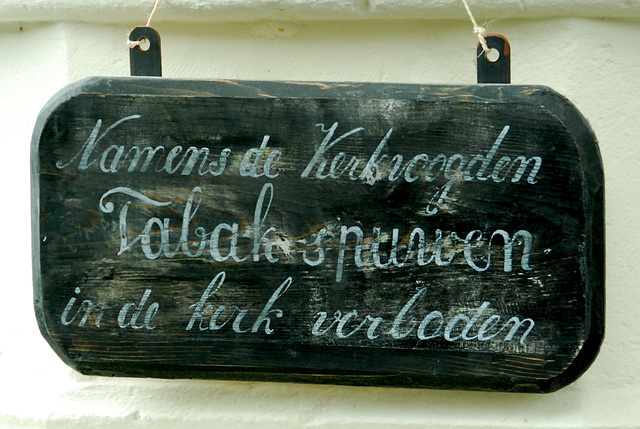 Namens de Kerkvoogden
Tabak-spuwen
in de kerk verboden